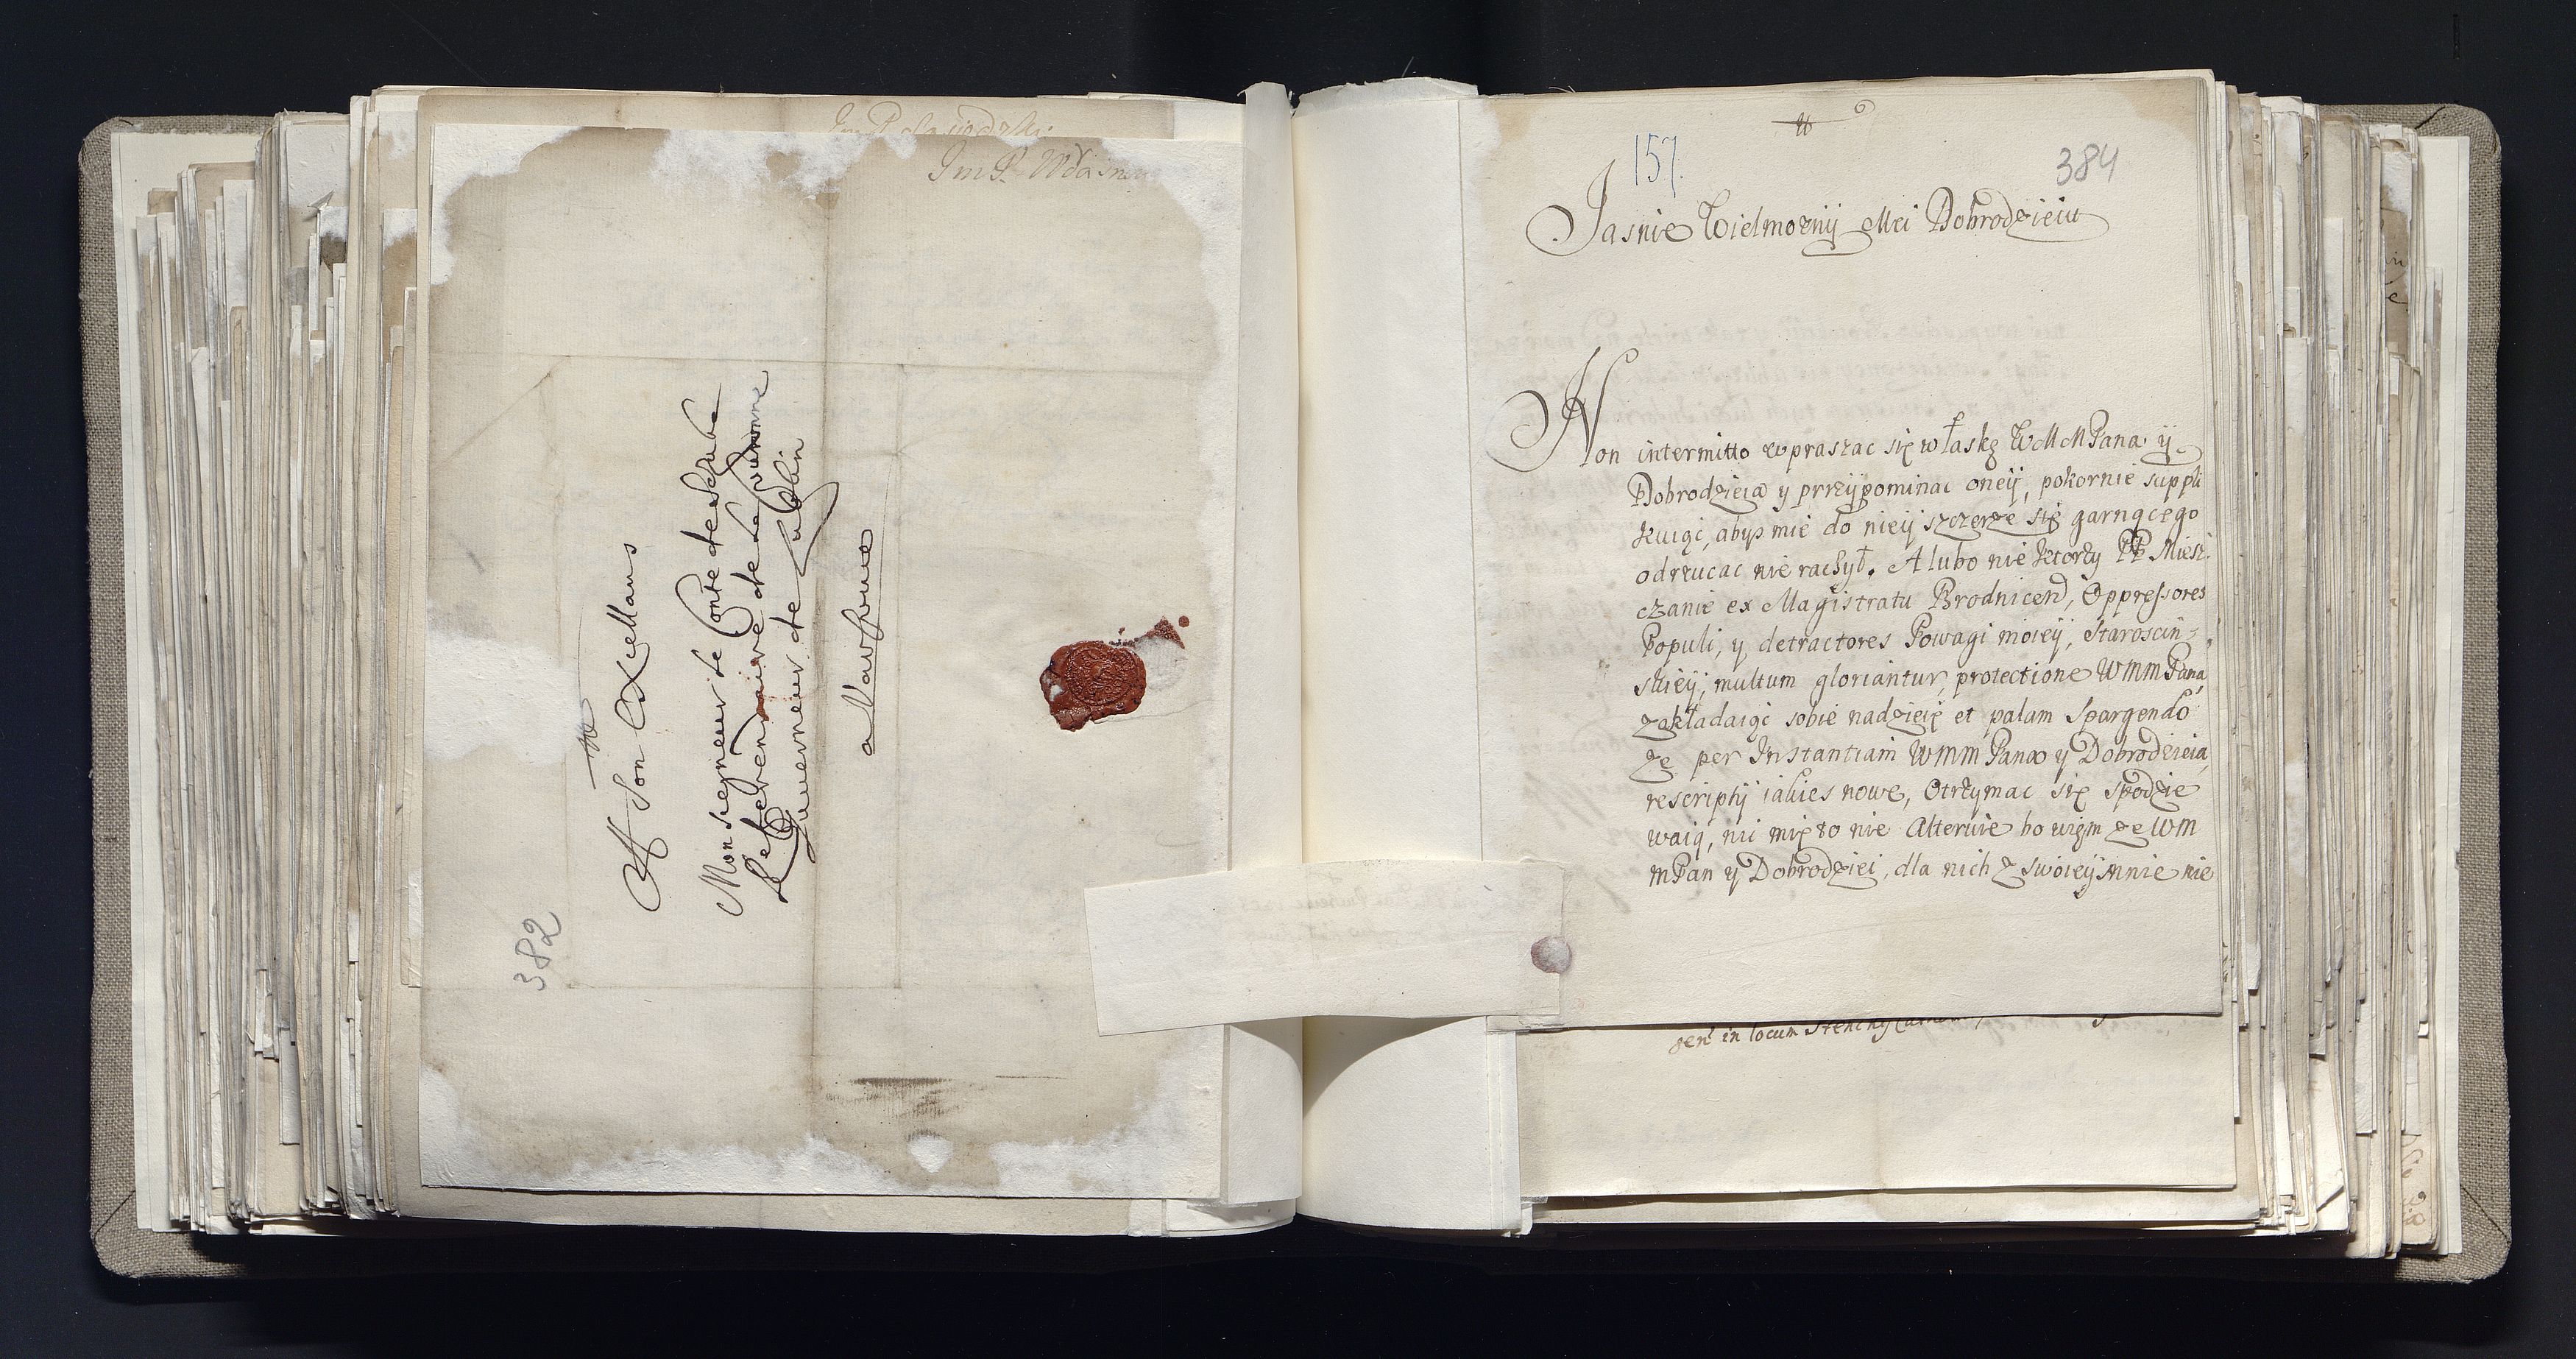 382
A Son Exellans
Monseigneur le Conte de
Referendaire de la
Guuerneur de Lublin
a Varsovie
157.
384
Jasnie Wielmozny Mci Dobrodzieiu
Non intermitto wpraszac się w łaskę WMMPana y
Dobrodzieia y przypominac oney, pokornie suppli
kuiąc, abys mie do niey szczerze się garnącego
odrzucac nie raczył. A lubo nie ktorzy PP Miesz
czanie ex Magistratu Brodnicen, Oppressores
Populi, y detractores Powagi moiey, Staroscin-
skiey, multum gloriantur, protectione WMMPana
zakładaiąc sobie nadzieię et palam spargendo
ze per Instantiam WMMPana y Dobrodzieia,
rescripty iakies nowe, Otrzymac się spodzie
waią, nic mię to nie Alteruie bo wiem ze WM
MPan y Dobrodziei, dla nich z swoiey mnie nie
in locum